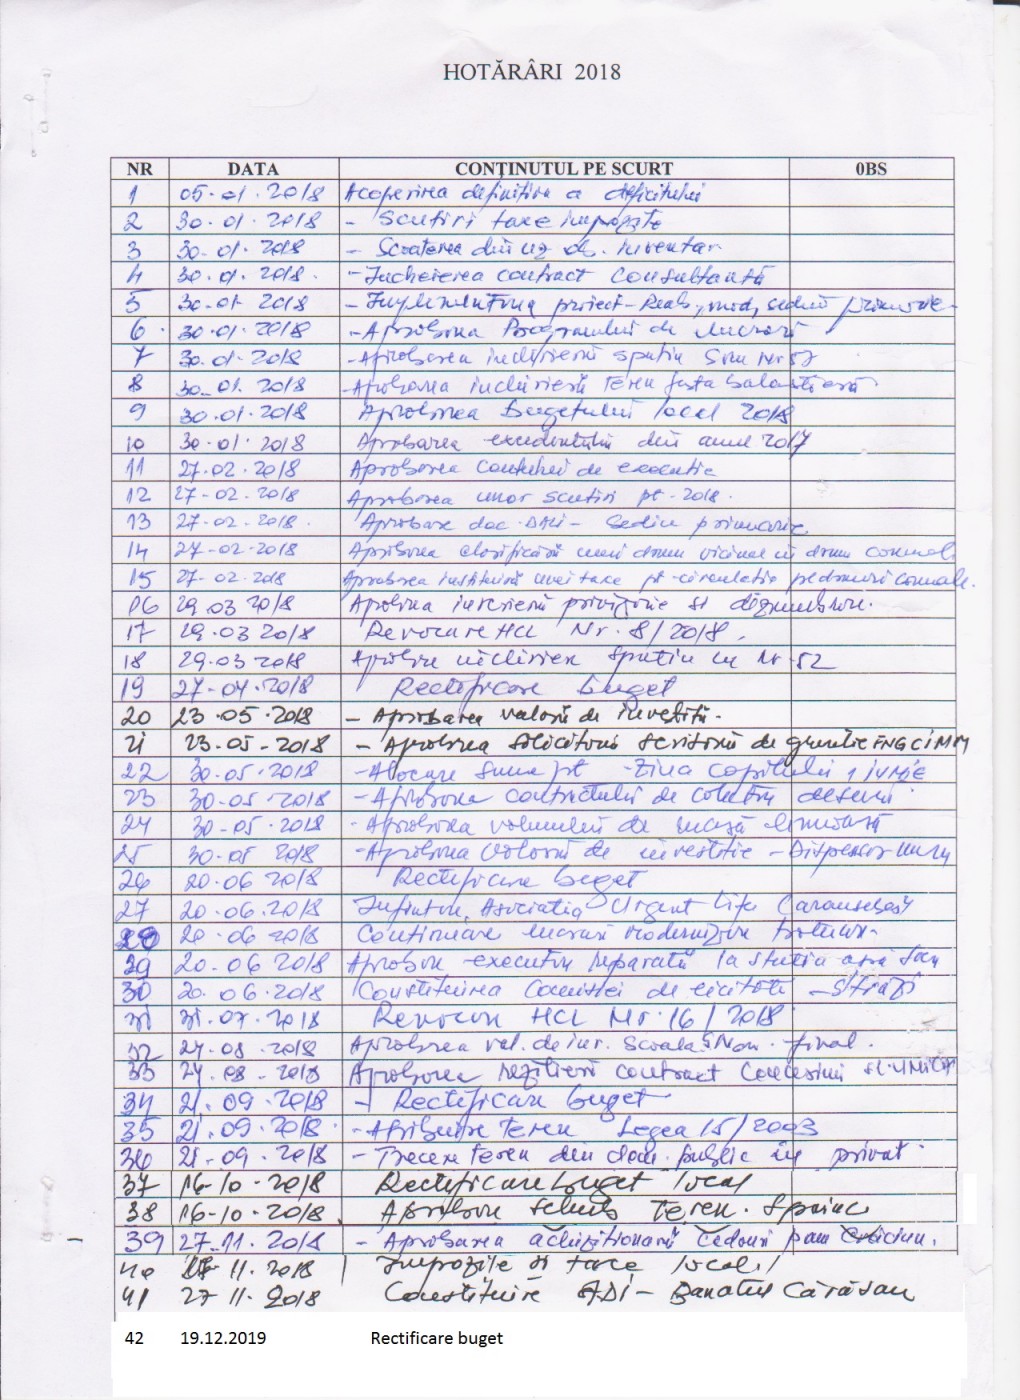 HOTĂRÂRI 2018
NR DATA CONȚINUTUL PE SCURT 0BS
1 05.01.2018 Acoperirea definitiva a deficitului
2 30.01.2018 - Scutiri taxe impozite
3 30.01.2018 - Scoaterea din uz ob. inventar
4 30.01.2018. - Incheierea contract consultanta
5 30.01.2018 - proiect - sediu primarie
6. 30.01.2018 - Aprobarea Programului de lucrari
7 30.01.2018 - Aprobarea inchirierii spatiu Nr 52
8 30.01.2018 - Aprobarea inchirierii teren
9 30.01.2018 Aprobarea bugetului local 2018
10 30.01.2018 Aprobarea excedentului din anul 2017
11 27.02.2018 Aprobarea contului de executie
12 27-02.2018 Aprobarea unor scutiri pt - 2018.
13 27-02.2018. Aprobare doc. - Sediu primarie
14 27-02-2018 Aprobarea clasificării unui drum vicinal in drum comunal
15 27-02.2018 Aprobarea instituirii unei taxe pt - circulatia pe drumuri comunale.
16 29.03 2018 Aprobarea
17 29.03 2018 Revocare HCL Nr. 8/2018.
18 29.03 2018 Aprobare inchiriere Spatiu cu Nr. 52
19 27-04.2018 Rectificare buget
20 23.05.2018 - Aprobarea valorii de investitii.
21 23.05-2018 - Aprobarea solicitarii scrisorii de garantie FNGCIMM
22 30.05.2018 - Alocare suma pt - Ziua Copilului 1 iunie
23 30.05 2018 - Aprobarea contractului de colectare deseuri
24 30-05.2018 - Aprobarea volumului de masă lemnoasă
25 30.05 2018 - Aprobarea valorii de investitie - Dispensar uman
26 20.06 2018 Rectificare buget
27 20.06.2018 Infiintare Asociatia Urgent Life Caransebeș
28 20.06 2018 Continuare lucrari modernizare trotuar
29 20.06 2018 Aprobare executie reparatii la
30 20.06.2018 Constituirea Comisiei de licitatie - Străzi
31 31.07.2018 Revocare HCL Nr. 16/2018
32 27.08.2018 Aprobarea val. de inv. Scoala final.
33 27.08-2018 Aprobarea rezilierii contract Concesiune
34 21.09.2018 - Rectificare buget
35 21.09.2018. - Atribuire teren Legea 15/2003
36 21-09.2018 - Trecere teren din dom. public in privat.
37 16-10-2018 Rectificare buget local
38 16-10.2018. Aprobare schimb teren.
39 27-11.2018 - Aprobarea achizitionarii cadouri pom Crăciun.
40 11.2018 Impozite si taxe locale
41 27 11.2018 Constituire ADI - Banatul Cărășan
42 19.12.2019 Rectificare buget